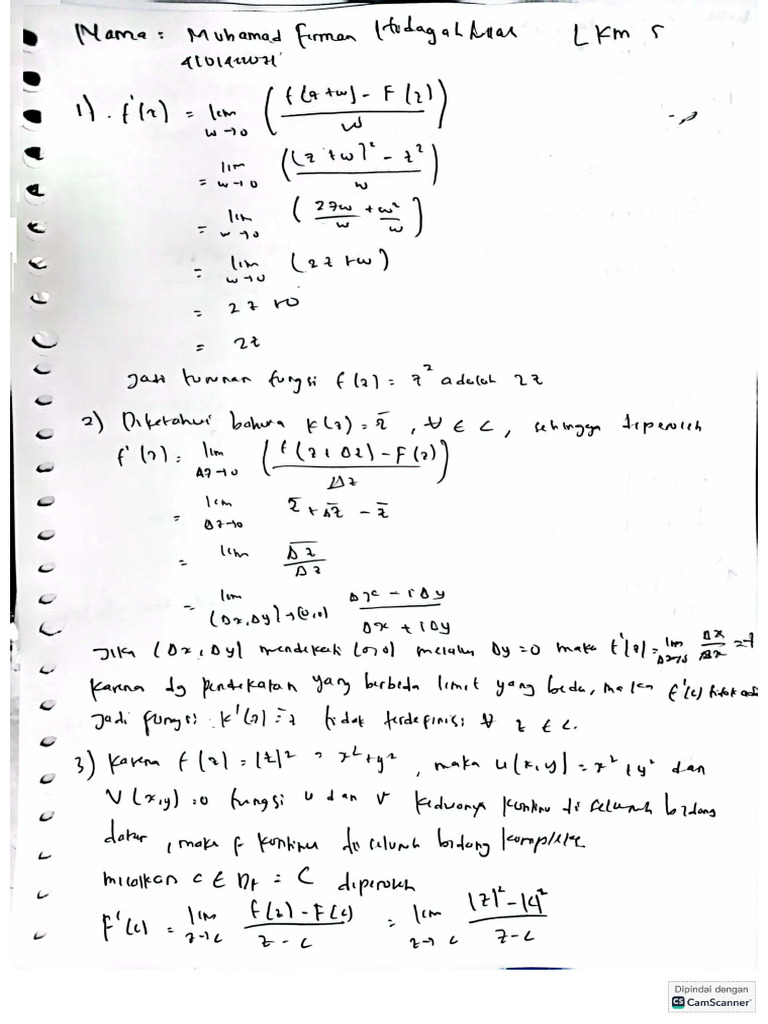 Nama : Muhamad Firman LKM 5
1). f'(z) = lim w→0 ( f(z+w) - F(z) / w )
= lim w→0 ( (z+w)² - z² / w )
= lim w→0 ( 2zw/w + w²/w )
= lim w→0 (2z+w)
= 2z+0
= 2z
Jadi turunan fungsi f(z) = z² adalah 2z
2) Diketahui bahwa k(z) = z̅ , ∀ ∈ C, sehingga diperoleh
f'(z) = lim Δz→0 ( f(z+Δz) - F(z) / Δz )
= lim Δz→0 z̅ + Δ̅z̅ - z̅
= lim Δ̅z̅ / Δz
= lim (Δx,Δy)→(0,0) Δx - iΔy / Δx + iΔy
Jika (Δx, Δy) mendekati (0,0) melalui Δy = 0 maka f'(z) = lim Δx→0 Δx/Δx =
Karena dg pendekatan yang berbeda limit yang beda, maka f'(c) tidak
Jadi fungsi k'(z) = z̅ tidak terdefinisi ∀ z ∈ C.
3) Karena f(z) = |z|² = x²+y² , maka u(x,y) = x²+y² dan
V(x,y) = 0 fungsi u dan v keduanya kontinu di seluruh bidang
datar, maka f kontinu di seluruh bidang kompleks
misalkan c ∈ Df = C diperoleh
F'(c) = lim z→c f(z) - F(c) / z - c = lim z→c |z|² - |c|² / z-c
Dipindai dengan
CS CamScanner